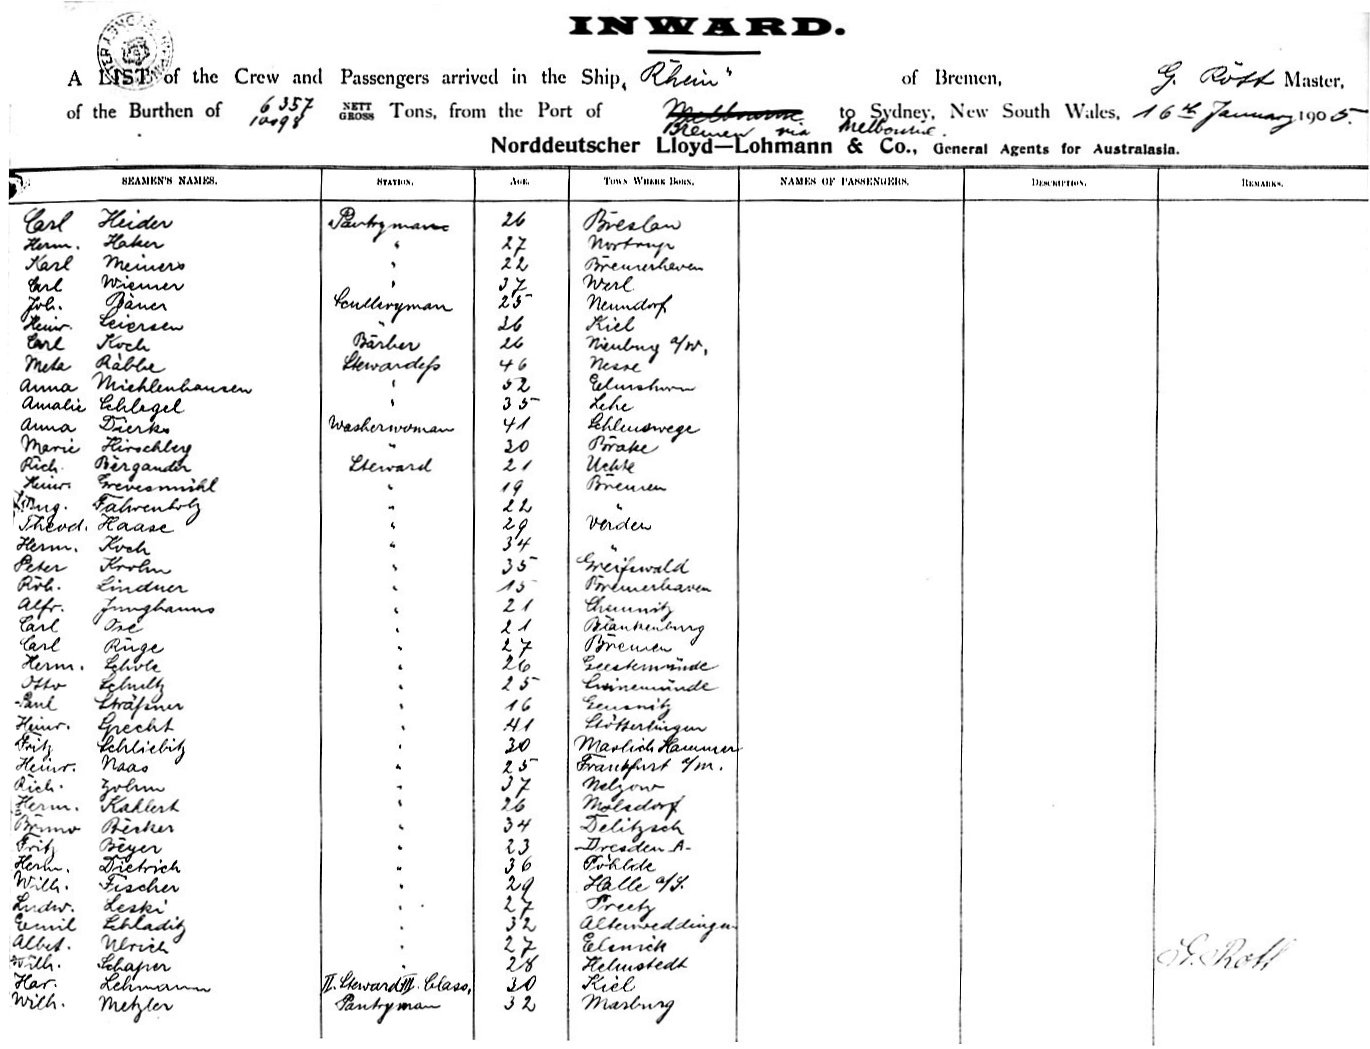 INWARD.
A LIST of the Crew and Passengers arrived in the Ship, "Rhein" of Bremen, G. Rott Master,
of the Burthen of 6357 10098 NETT GROSS Tons, from the Port of Melbourne Bremen via Melbourne. to Sydney, New South Wales, 16th January 1905.
Norddeutscher Lloyd—Lohmann & Co., General Agents for Australasia.
SEAMEN'S NAMES. STATION. AGE. TOWN WHERE BORN. NAMES OF PASSENGERS. DESCRIPTION. REMARKS.
Carl Heider Pantryman 26 Breslau
Herm. Haker " 27 Nortrup
Karl Meiners " 22 Bremerhaven
Carl Wiemer " 37 Werl
Joh. Bäuer Scullery man 25 Nenndorf
Heinr. Leiersen " 26 Kiel
Carl Koch Barber 26 Nienburg a/W.
Meta Rabbe Stewardeſs 46 Nesse
Anna Michlenhausen " 52 Elmshorn
Amalie Schlegel " 35 Lehe
Anna Dierks Washerwoman 41
Marie Hirschberg " 30 Brake
Rich. Bergander Steward 21 Uchte
Heinr. Grevesmühl " 19 Bremen
Aug. Fahrenholz " 22 "
Theod. Haase " 29 Verden
Herm. Koch " 34 "
Peter Krohn " 35 Greifswald
Rob. Lindner " 15 Bremerhaven
Alfr. Junghanns " 21 Chemnitz
Carl " 21 Blankenburg
Carl Rüge " 27 Bremen
Herm. Scholz " 26 Geestemünde
Otto Schultz " 25 Swinemünde
Paul Sträſsner " 16
Heinr. Specht " 41 Stötterlingen
Fritz Schliebitz " 30 Hammer
Heinr. Naas " 25 Frankfurt a/M.
Rich. " 37
Herm. Kahlert " 26 Molsdorf
Bruno Becker " 34 Delitzsch
Fritz Beyer " 23 Dresden A-
Herm. Dietrich " 36 Pöhlde
Wilh. Fischer " 29 Halle a/S.
Ludw. Leski " 27 Preetz
Emil Schladitz " 32 Altenweddingen
Albert. Ulrich " 27
Wilh. Schaper " 28 Helmstedt G. Rott
Har. Lehmann II. Steward III. Class. 30 Kiel
Wilh. Metzler Pantryman 32 Marburg